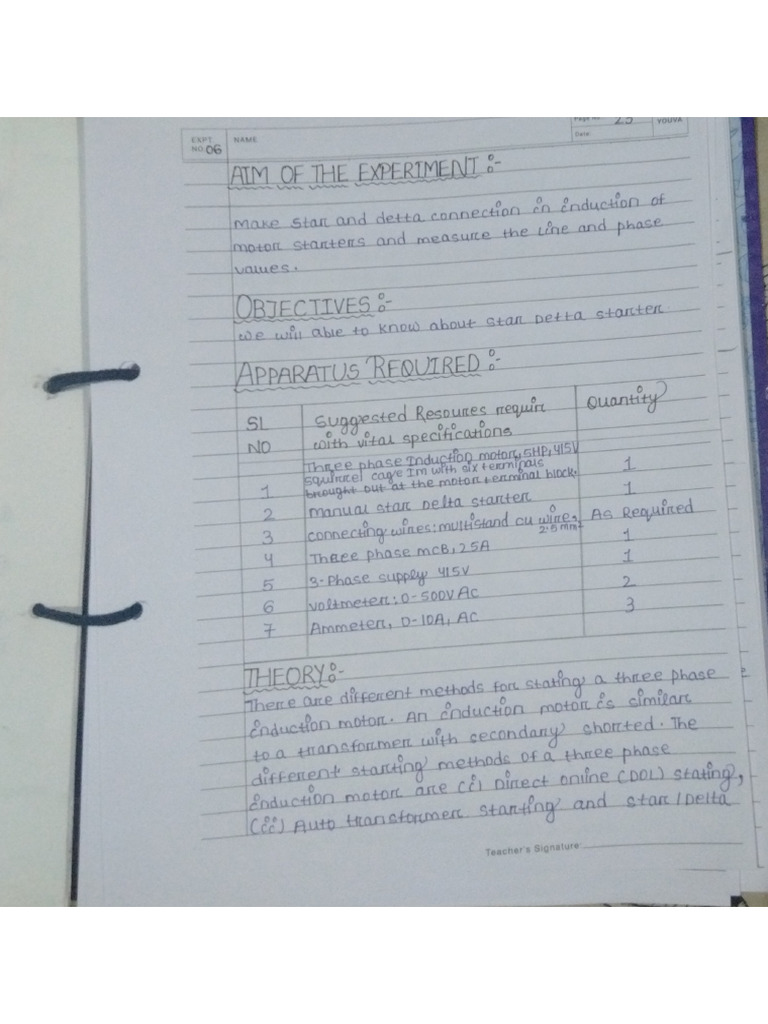 Page No. 25
YOUVA
Date:
EXPT. NO. 06
NAME
AIM OF THE EXPERIMENT :-
make star and delta connection in induction of
motor starters and measure the line and phase
values.
OBJECTIVES :-
we will able to know about star Delta starter.
APPARATUS REQUIRED :-
SL NO
Suggested Resources require with vital specifications
Quantity
1 Three phase Induction motor, 5HP, 415V squirrel cage Im with six terminals brought out at the motor terminal block. 1
2 manual star Delta starter 1
3 connecting wires: multistand cu wire, 2.5 mm² As Required
4 Three phase mcB, 25A 1
5 3-Phase supply 415V 1
6 voltmeter: 0-500V AC 2
7 Ammeter, 0-10A, AC 3
THEORY :-
There are different methods for stating a three phase
induction motor. An induction motor is similar
to a transformer with secondary shorted. The
different starting methods of a three phase
induction motor are (i) Direct online (DOL) stating,
(ii) Auto transformer starting and star/Delta
Teacher's Signature